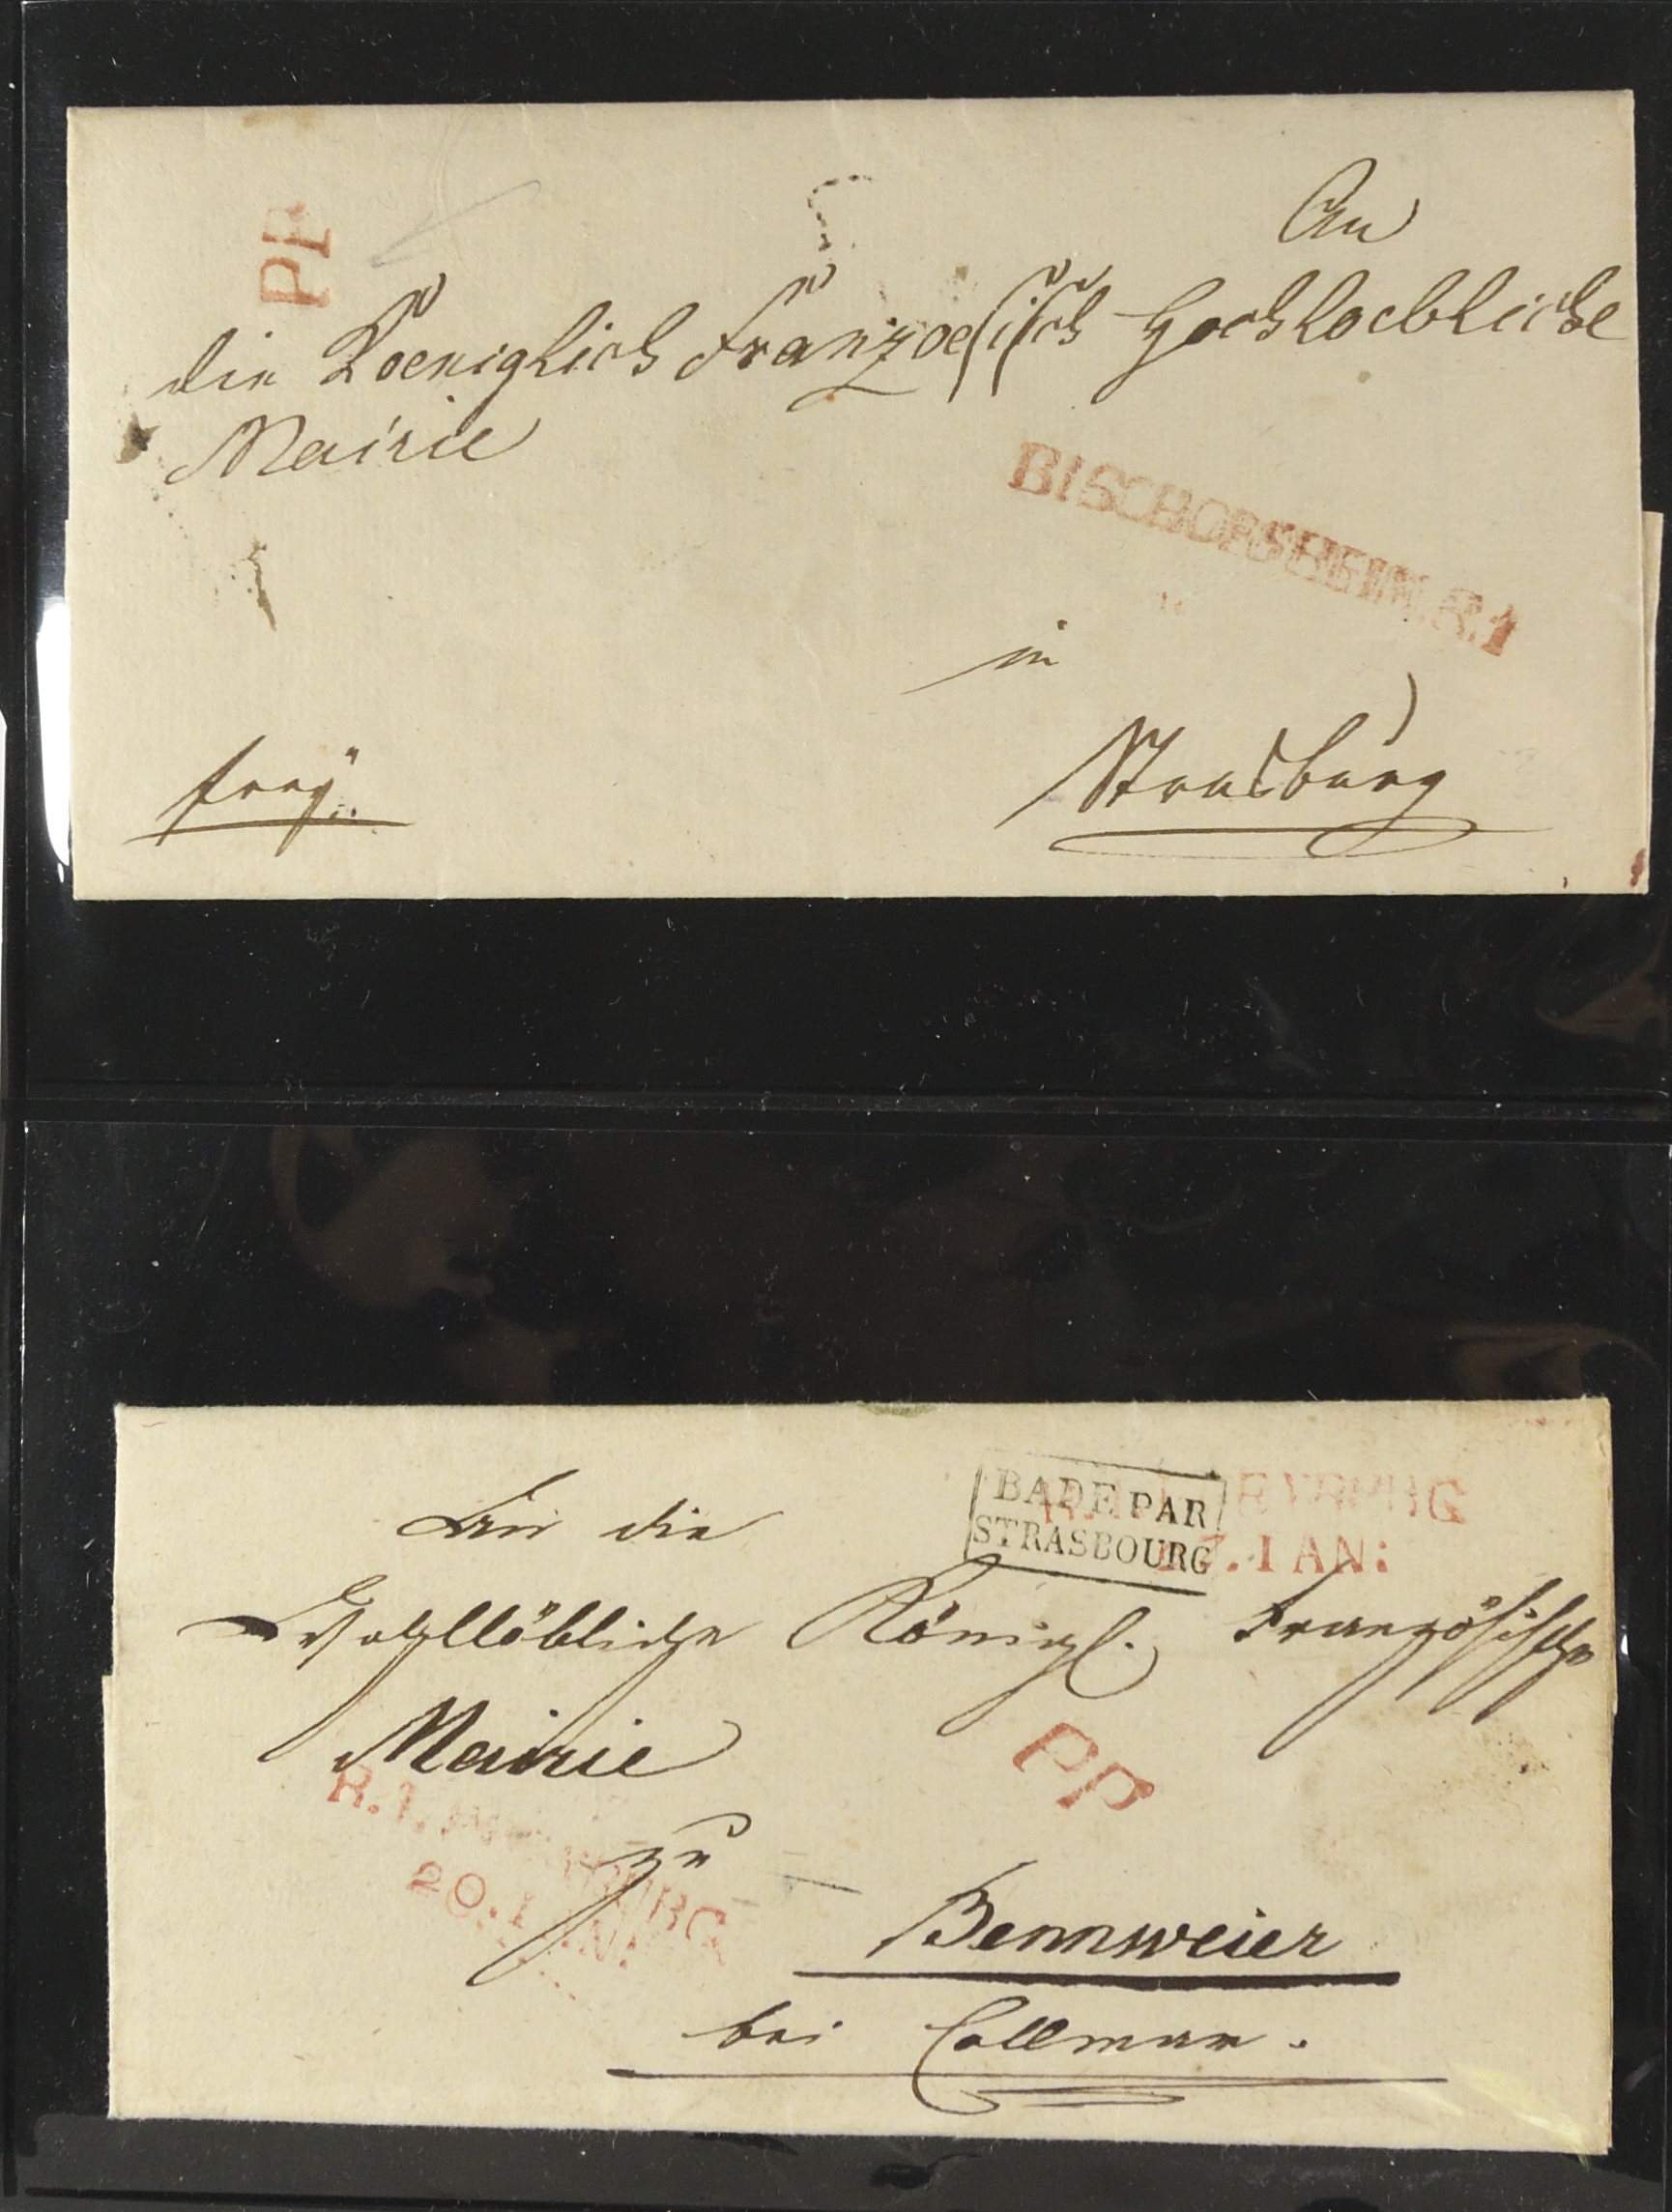 An
PP
die Koeniglich Franzoesisch Hochloebliche
Mairie
BISCHOFSHEIM.R.1
in
frey
Strasburg
BADE PAR
STRASBOURG
7.IAN:
An die
Wohllöbliche Königl. Französische
Mairie
PP
R.1.
20.I N:
zu
Bennweier
bei Collmar.